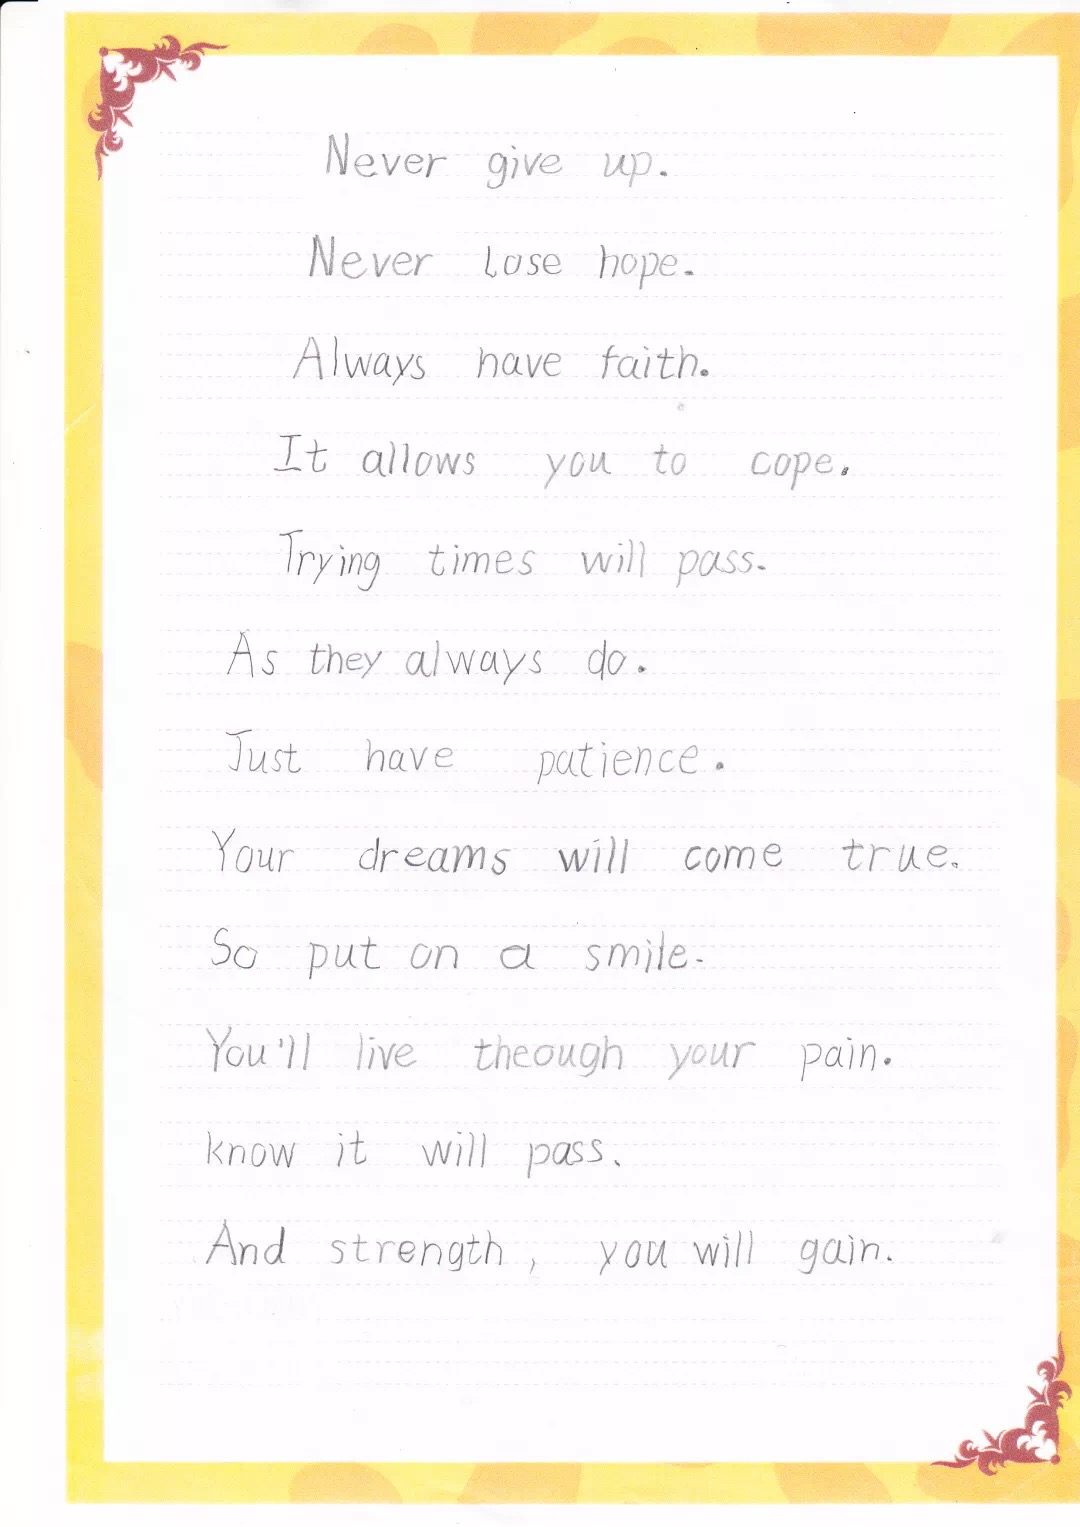 Never give up.
Never Lose hope.
Always have faith.
It allows you to cope.
Trying times will pass.
As they always do.
Just have patience.
Your dreams will come true.
So put on a smile.
You'll live theough your pain.
know it will pass.
And strength, you will gain.